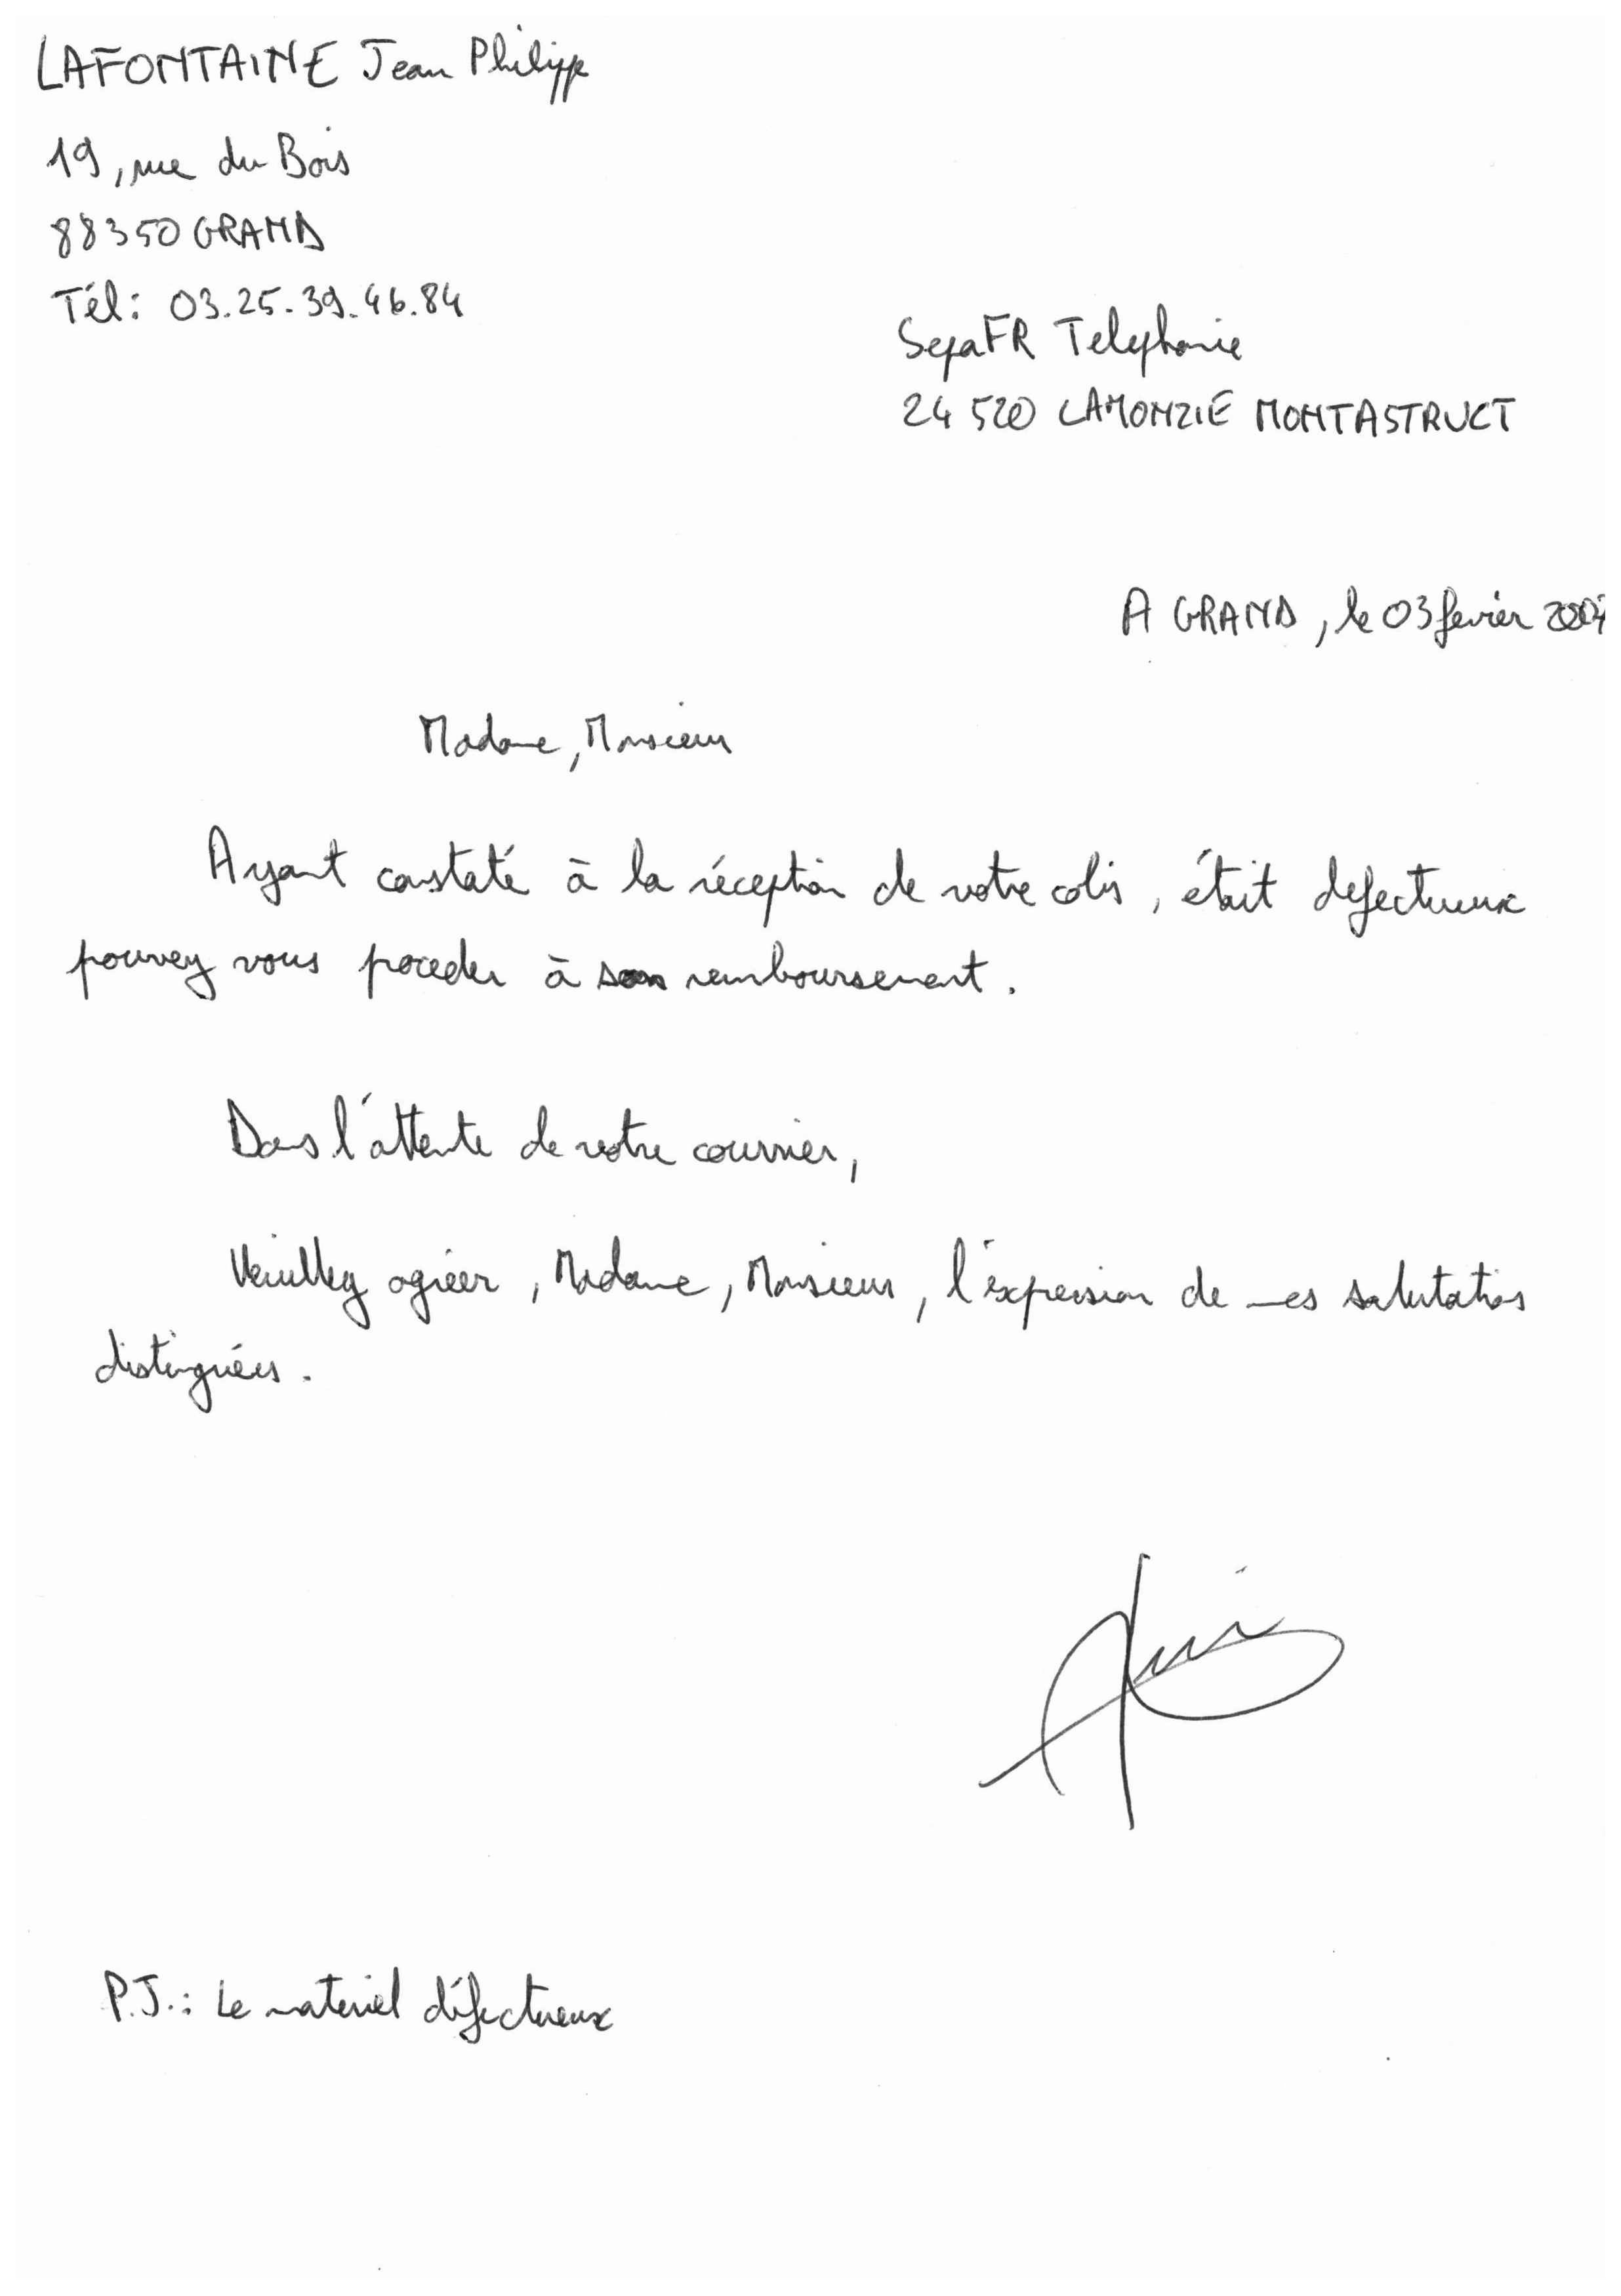 LAFONTAINE Jean Philippe
19, rue du Bois
88350 GRAND
Tél : 03.25.39.46.84
SepaFR Telephonie
24 520 LAMONZIE MONTASTRUCT
A GRAND, le 03 fevrier
Madame, Monsieur
Ayant constaté à la réception de votre colis, était defectueux
pouvez vous proceder à son remboursement.
Dans l'attente de votre courrier,
Veuillez agréer, Madame, Monsieur, l'expression de mes salutations
distinguées.
P.J. : Le materiel défectueux